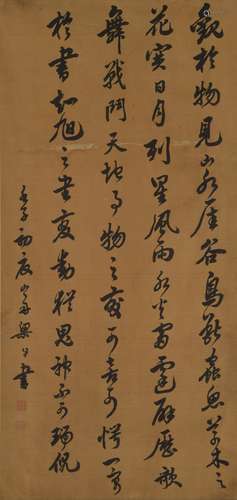 觀於物見山水崖谷鳥獸蟲魚草木之
花實日月列星風雨水火雷霆霹靂歌
舞戰鬥天地事物之變可喜可愕一寓
於書故旭之書變動猶鬼神不可端倪
壬子初夏山舟梁同書